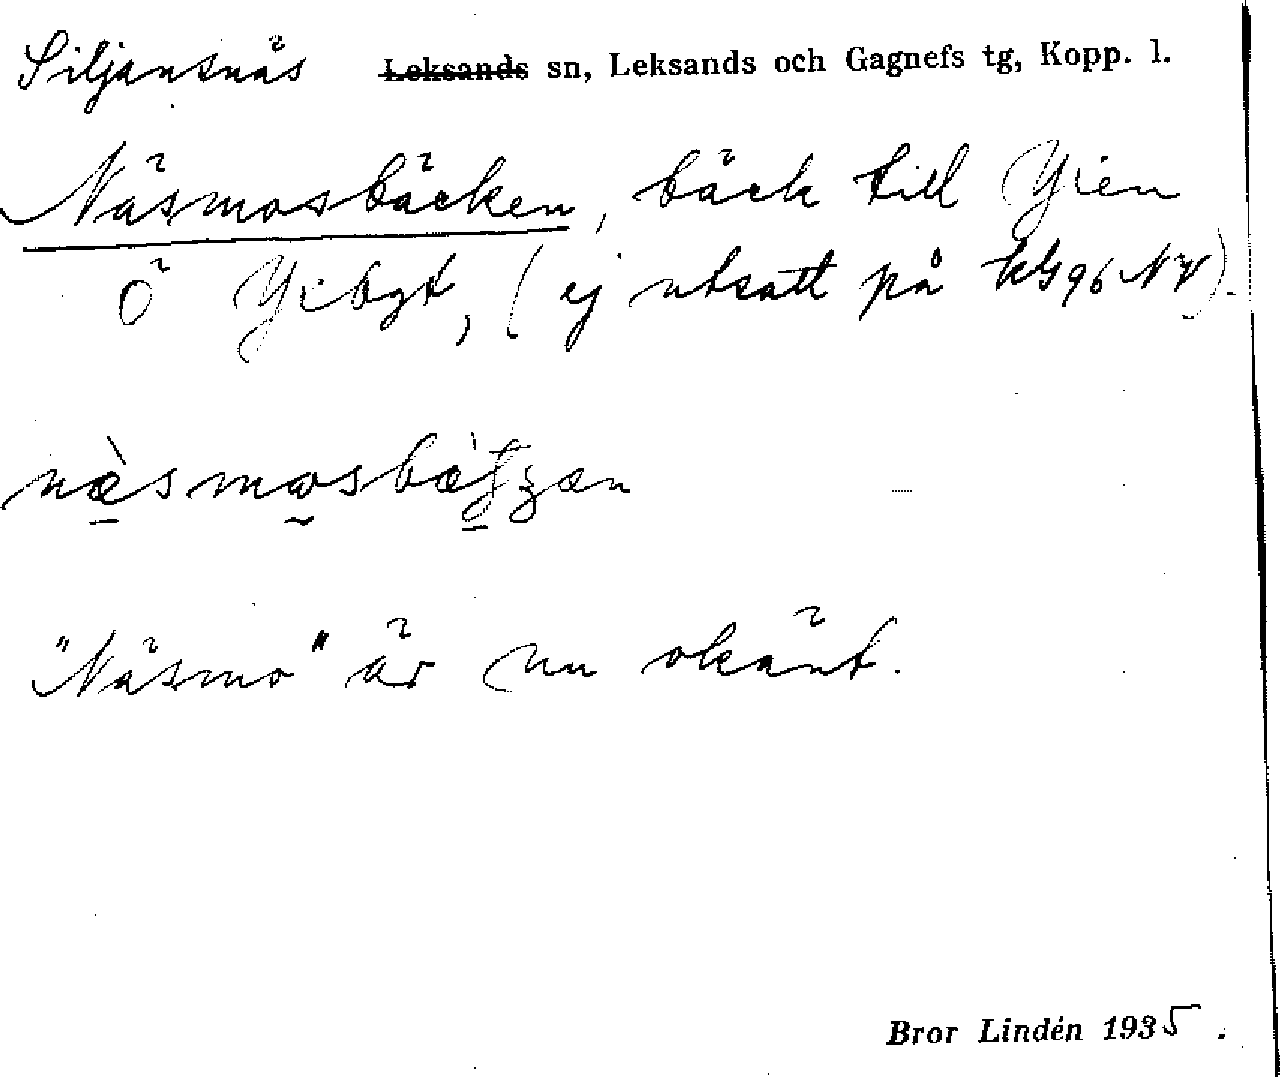 Siljansnäs ~~Leksands~~ sn, Leksands och Gagnefs tg, Kopp. l.
Näsmosbäcken, bäck till Yien
Ö Yibyt, (ej utsatt på kG96 NV).
"Näsmo" är nu okänt.
Bror Lindén 1935.